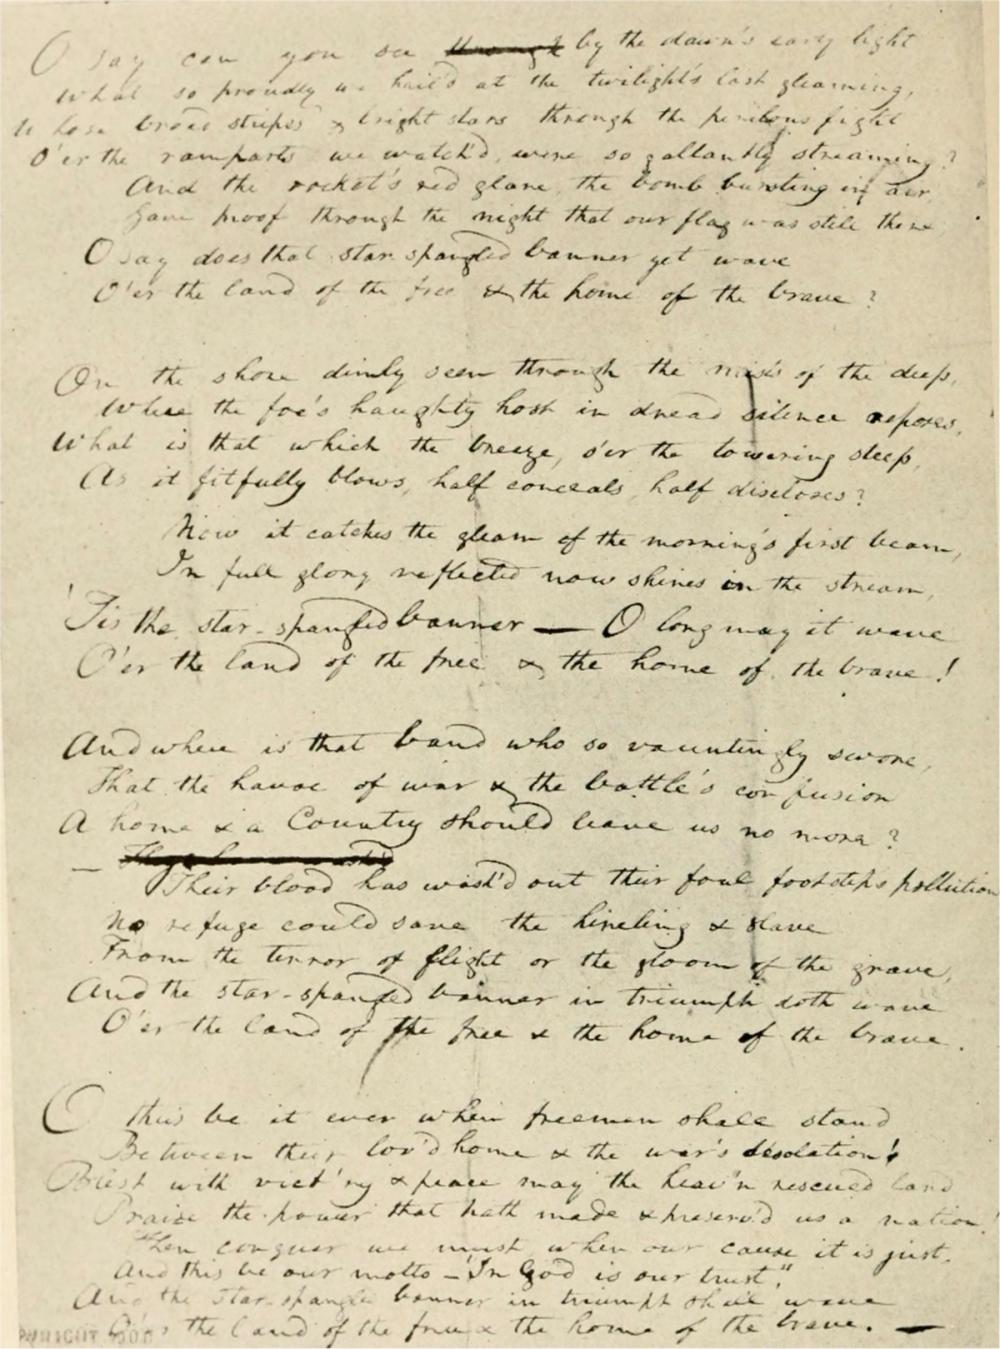 O say can you see through by the dawn's early light
What so proudly we hail'd at the twilight's last gleaming,
Whose broad stripes & bright stars through the perilous fight
O'er the ramparts we watch'd, were so gallantly streaming?
And the rocket's red glare, the bomb bursting in air,
Gave proof through the night that our flag was still there
O say does that star spangled banner yet wave
O'er the land of the free & the home of the brave?
On the shore dimly seen through the mists of the deep,
Where the foe's haughty host in dread silence reposes,
What is that which the breeze, o'er the towering steep,
As it fitfully blows, half conceals, half discloses?
Now it catches the gleam of the morning's first beam,
In full glory reflected now shines in the stream,
'Tis the star-spangled banner — O long may it wave
O'er the land of the free & the home of the brave!
And where is that band who so vauntingly swore,
That the havoc of war & the battle's confusion
A home & a Country should leave us no more?
—
Their blood has wash'd out their foul footsteps pollution
No refuge could save the hireling & slave
From the terror of flight or the gloom of the grave,
And the star-spangled banner in triumph doth wave
O'er the land of the free & the home of the brave.
O thus be it ever when freemen shall stand
Between their lov'd home & the war's desolation!
Blest with vict'ry & peace may the heav'n rescued land
Praise the power that hath made & preserv'd us a nation!
Then conquer we must, when our cause it is just,
And this be our motto — "In God is our trust,"
And the star-spangled banner in triumph shall wave
O'er the land of the free & the home of the brave. —